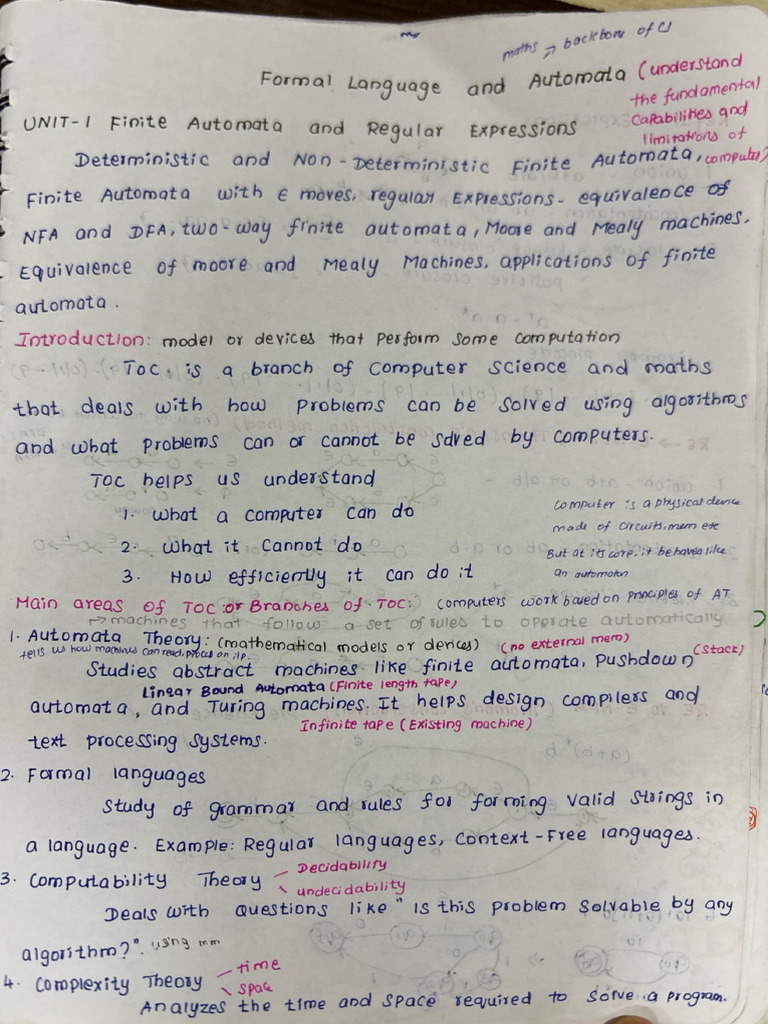 maths → backbone of CS
Formal Language and Automata (understand
the fundamental
capabilities and
limitations of
computer)
UNIT-1 Finite Automata and Regular Expressions
Deterministic and Non-Deterministic Finite Automata,
Finite Automata with E moves, regular Expressions- equivalence of
NFA and DFA, two-way finite automata, Moore and Mealy machines,
Equivalence of moore and Mealy Machines, applications of finite
automata.
Introduction: model or devices that perform some computation
TOC is a branch of computer science and maths
that deals with how problems can be solved using algorithms
and what problems can or cannot be solved by computers.
TOC helps us understand
1. what a computer can do
2. what it cannot do
3. How efficiently it can do it
computer is a physical device
made of circuits, mem etc
But at its core, it behaves like
an automaton
Main areas of TOC or Branches of TOC: computers work based on principles of AT
→ machines that follow a set of rules to operate automatically
1. Automata Theory: (mathematical models or devices) (no external mem)
tells us how machines can read, process on i/p.
Studies abstract machines like finite automata, Pushdown (Stack)
Linear Bound Automata (Finite length tape)
automata, and Turing machines. It helps design compilers and
Infinite tape (Existing machine)
text processing systems.
2. Formal languages
Study of grammar and rules for forming valid strings in
a language. Example: Regular languages, Context-Free languages.
3. Computability Theory - Decidability
undecidability
Deals with questions like "Is this problem solvable by any
algorithm?". using
4. Complexity Theory - time
space
Analyzes the time and space required to solve a program.